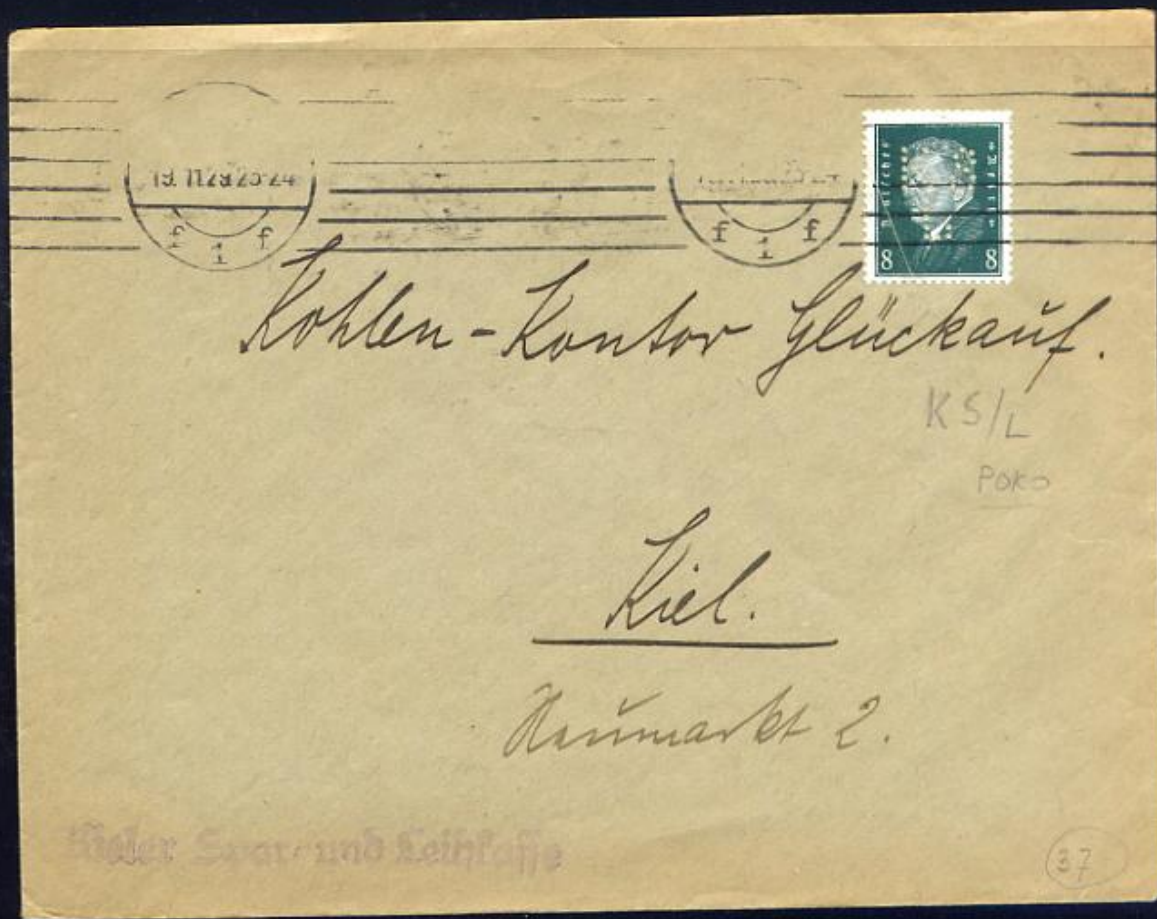 19.11.29.23-24
f 1 f
f 1 f
Deutsches Reich
8 8
Kohlen-Kontor Glückauf.
KS/L
POKO
Kiel.
Neumarkt 2.
Kieler Spar- und Leihkasse
37